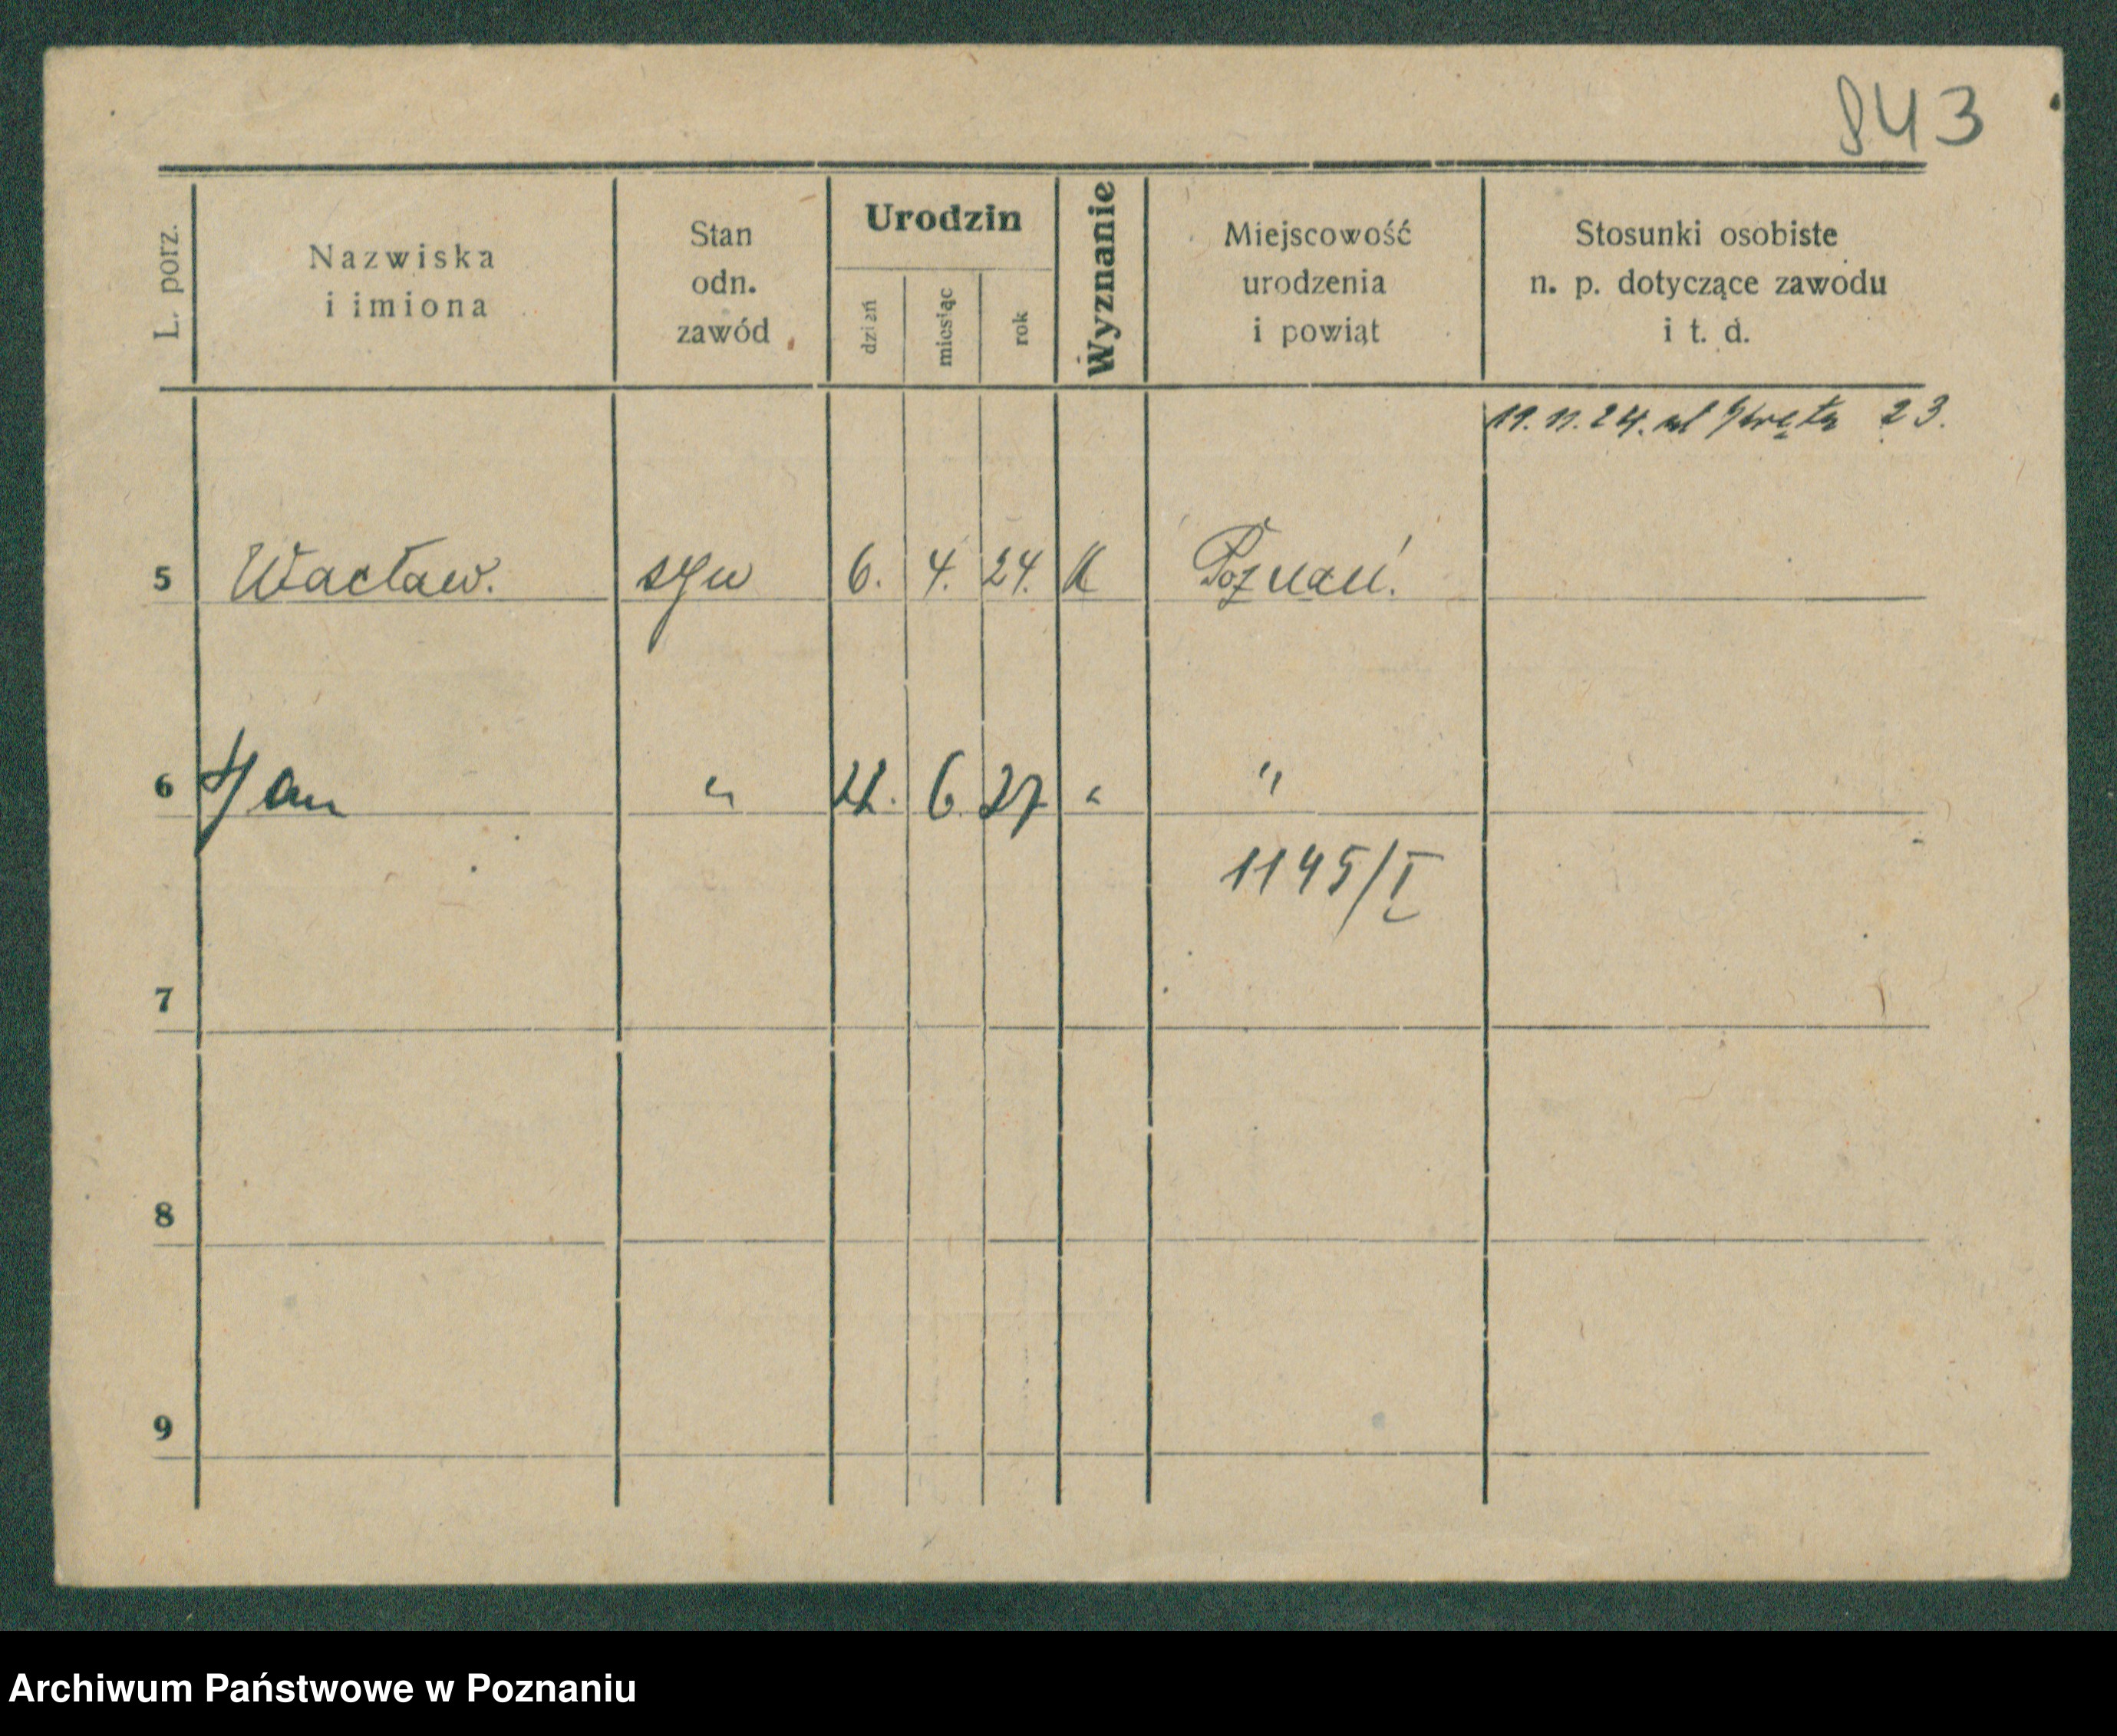 843
L. porz.
Nazwiska
i imiona
Stan
odn.
zawód
Urodzin
dzień
miesiąc
rok
Wyznanie
Miejscowość
urodzenia
i powiat
Stosunki osobiste
n. p. dotyczące zawodu
i t. d.
11. 11. 24. ul 23.
5 Wacław. syn 6. 4. 24. K Poznań.
6 Jan " 6. 27 " "
1145/I
7
8
9
Archiwum Państwowe w Poznaniu